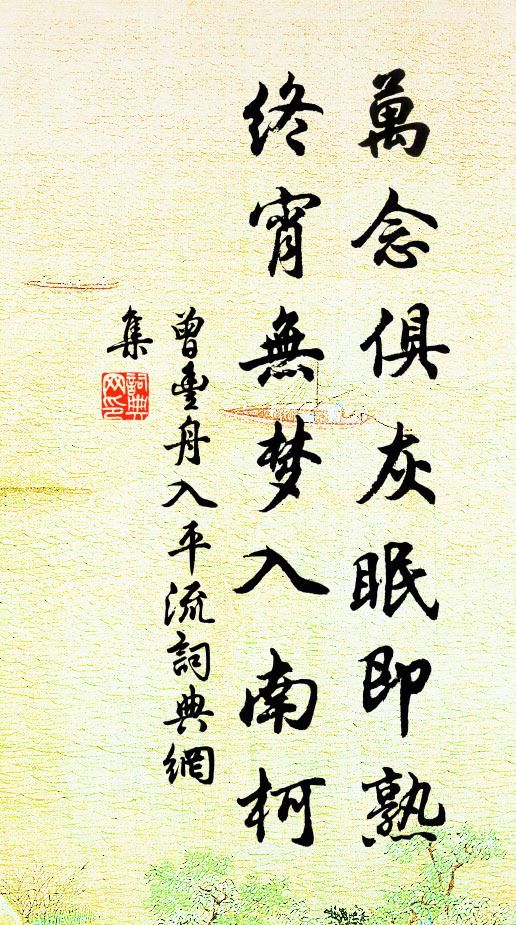 萬念俱灰眠即熟
終宵無梦入南柯
曾豐舟入平流詞典網
集
詞典
网印